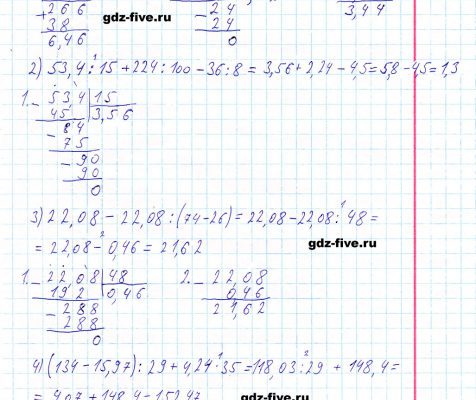 266
38
6,46
gdz-five.ru
24
24
0
3,44
2) 53,4:15+224:100-36:8=3,56+2,24-4,5=5,8-4,5=1,3
1. 53,4 | 15
45 | 3,56
- 84
75
- 90
90
0
3) 22,08-22,08:(74-26)=22,08-22,08:48=
= 22,08-0,46=21,62
gdz-five.ru
1. - 22,08 | 48
192 | 0,46
- 288
288
0
2. - 22,08
0,46
21,62
4) (134-15,97):29+4,24·35=118,03:29+148,4=
= 4,07+148,4=152,47
gdz-five.ru